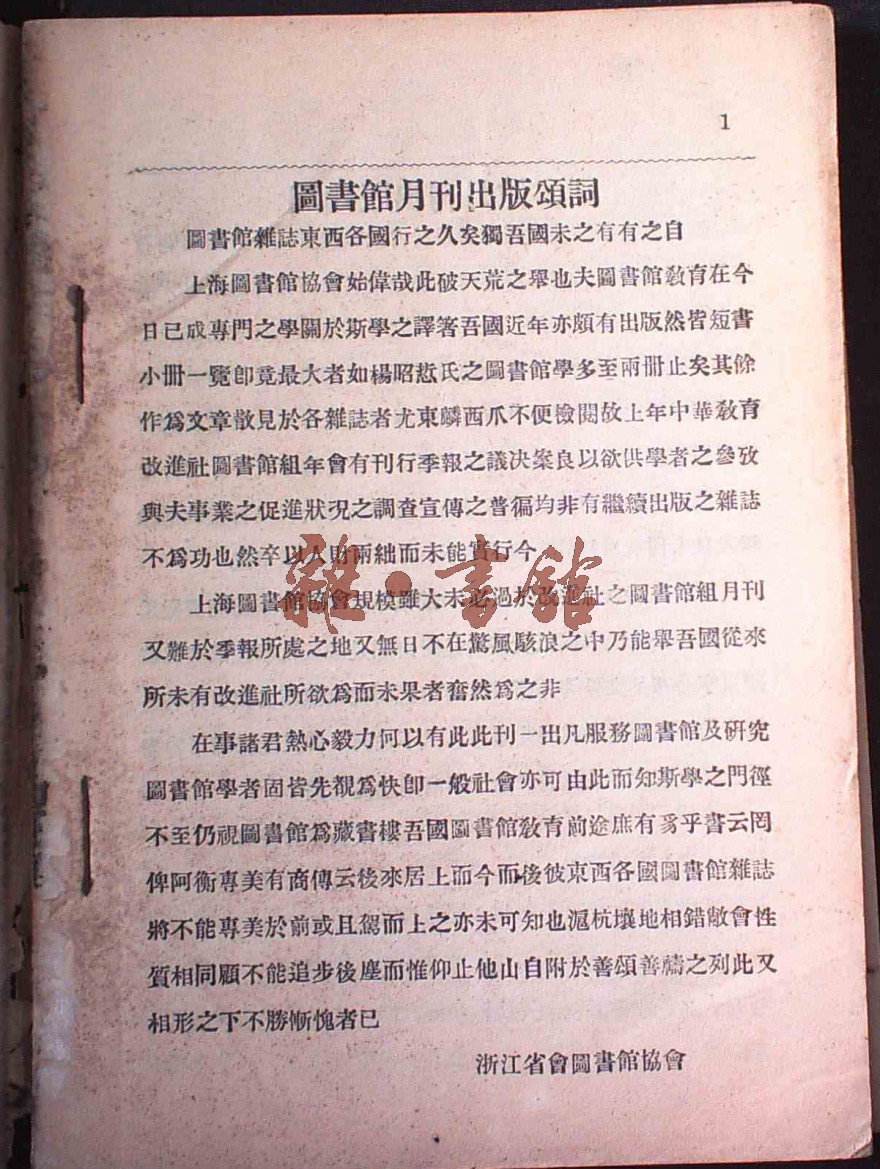 1
圖書館月刊出版頌詞
圖書館雜誌東西各國行之久矣獨吾國未之有有之自
上海圖書館協會始偉哉此破天荒之舉也夫圖書館敎育在今
日已成專門之學關於斯學之譯箸吾國近年亦頗有出版然皆短書
小冊一覽卽竟最大者如楊昭悊氏之圖書館學多至兩冊止矣其餘
作爲文章散見於各雜誌者尤東鱗西爪不便檢閱故上年中華敎育
改進社圖書館組年會有刊行季報之議决案良以欲供學者之參攷
與夫事業之促進狀况之調查宣傳之普徧均非有繼續出版之雜誌
不爲功也然卒以人財兩絀而未能實行今
上海圖書館協會規模雖大未必過於改進社之圖書館組月刊
又難於季報所處之地又無日不在驚風駭浪之中乃能舉吾國從來
所未有改進社所欲爲而未果者奮然爲之非
在事諸君熱心毅力何以有此此刊一出凡服務圖書館及硏究
圖書館學者固皆先覩爲快卽一般社會亦可由此而知斯學之門徑
不至仍視圖書館爲藏書樓吾國圖書館敎育前途庶有豸乎書云罔
俾阿衡專美有商傳云後來居上而今而後彼東西各國圖書館雜誌
將不能專美於前或且駕而上之亦未可知也滬杭壤地相錯敝會性
質相同顧不能追步後塵而惟仰止他山自附於善頌善禱之列此又
相形之下不勝慚愧者已
浙江省會圖書館協會
雜·書館